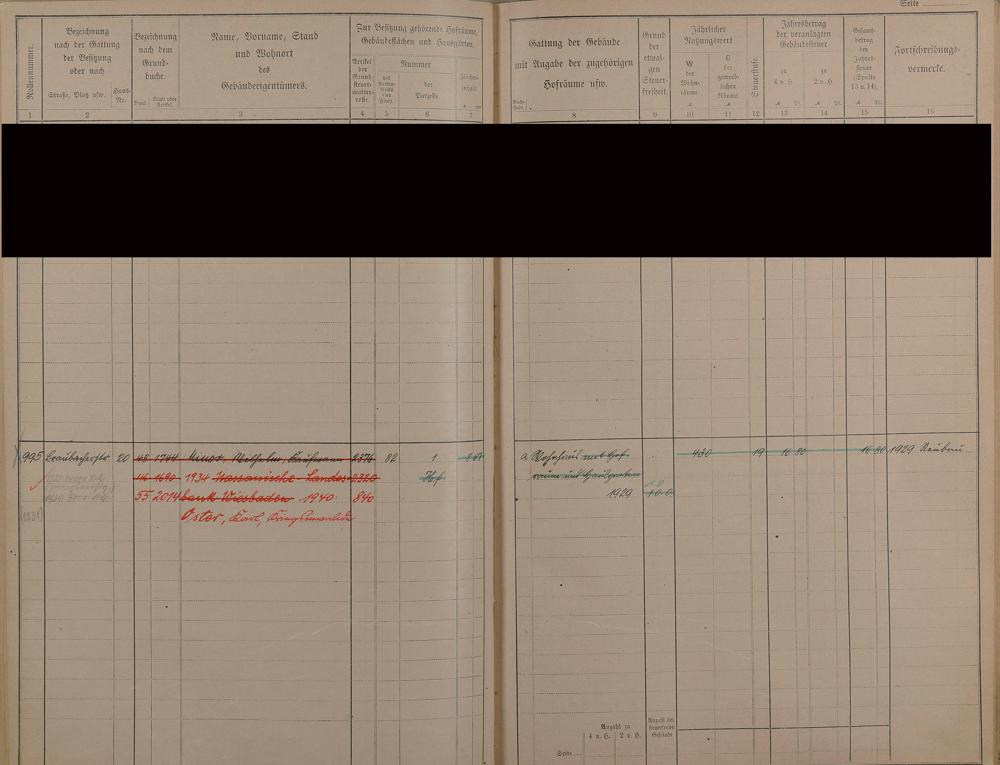 Seite
Rollennummer.
Bezeichnung
nach der Gattung
der Besitzung
oder nach
Straße, Platz usw.
Haus-
Nr.
Bezeichnung
nach dem
Grund-
buche.
Band
Blatt oder
Artikel.
Name, Vorname, Stand
und Wohnort
des
Gebäudeeigentümers.
Zur Besitzung gehörende Hofräume,
Gebäudeflächen und Hausgärten.
Artikel
der
Grund-
steuer-
mutter-
rolle.
Nummer
des
der
Parzelle.
Flächen-
inhalt.
1 2 3 4 5 6 7
Gattung der Gebäude
mit Angabe der zugehörigen
Hofräume usw.
Grund
der
etwai-
gen
Steuer-
freiheit.
Jährlicher
Nutzungswert
W
der
Wohn-
räume.
G
der
gewerb-
lichen
Räume.
Steuerstufe.
Jahresbetrag
der veranlagten
Gebäudesteuer
zu
4 v. H.
zu
2 v. H.
Gesamt-
betrag
der
Jahres-
steuer
(Spalte
13 u. 14).
Fortschreibungs-
vermerke.
8 9 10 11 12 13 14 15 16
995 Braubacherstr. 20 48 1744 Minor, Wilhelm, Kaufmann 2376 82 1
46 1690 1934 Nassauische Landes- 2320 Hf
55 2014 bank Wiesbaden 1940 840
Oster, Karl,
a Wohnhaus mit Hof-
raum und Hausgarten
1929
430 19 16 80 16 80 1929 Neubau
Anzahl zu
4 v. H. 2 v. H.
Anzahl der
steuerfreien
Gebäude
Seite